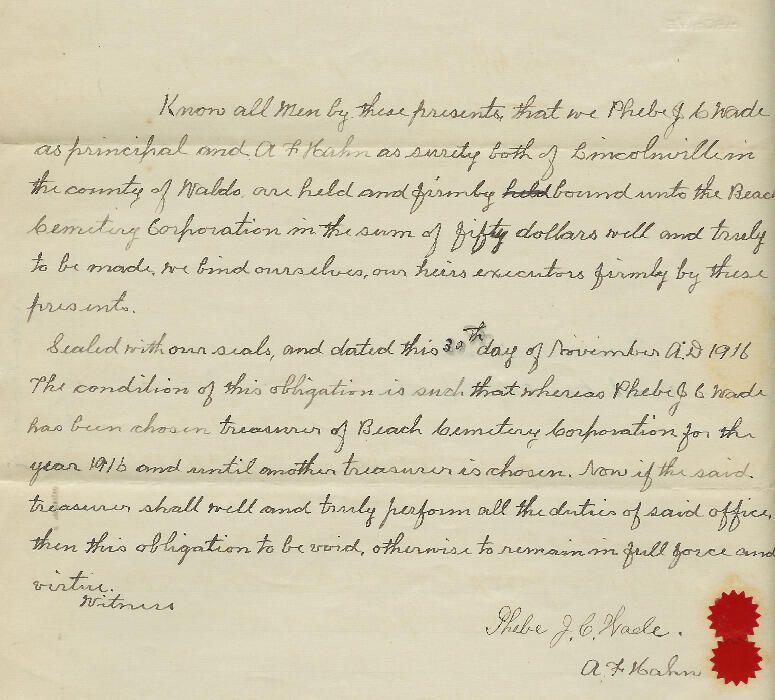 Know all Men by these presents, that we Phebe J C Wade
as principal and A F Hahn as surety both of Lincolnville in
the county of Waldo, are held and firmly held bound unto the Beach
Cemetery Corporation in the sum of fifty dollars well and truly
to be made, we bind ourselves, our heirs executors firmly by these
presents.
Sealed with our seals, and dated this 30th day of November A.D 1916
The condition of this obligation is such that whereas Phebe J C Wade
has been chosen treasurer of Beach Cemetery Corporation for the
year 1916 and until another treasurer is chosen. Now if the said
treasurer shall well and truly perform all the duties of said office,
then this obligation to be void, otherwise to remain in full force and
virtue.
Witness
Phebe J. C. Wade.
A. F Hahn